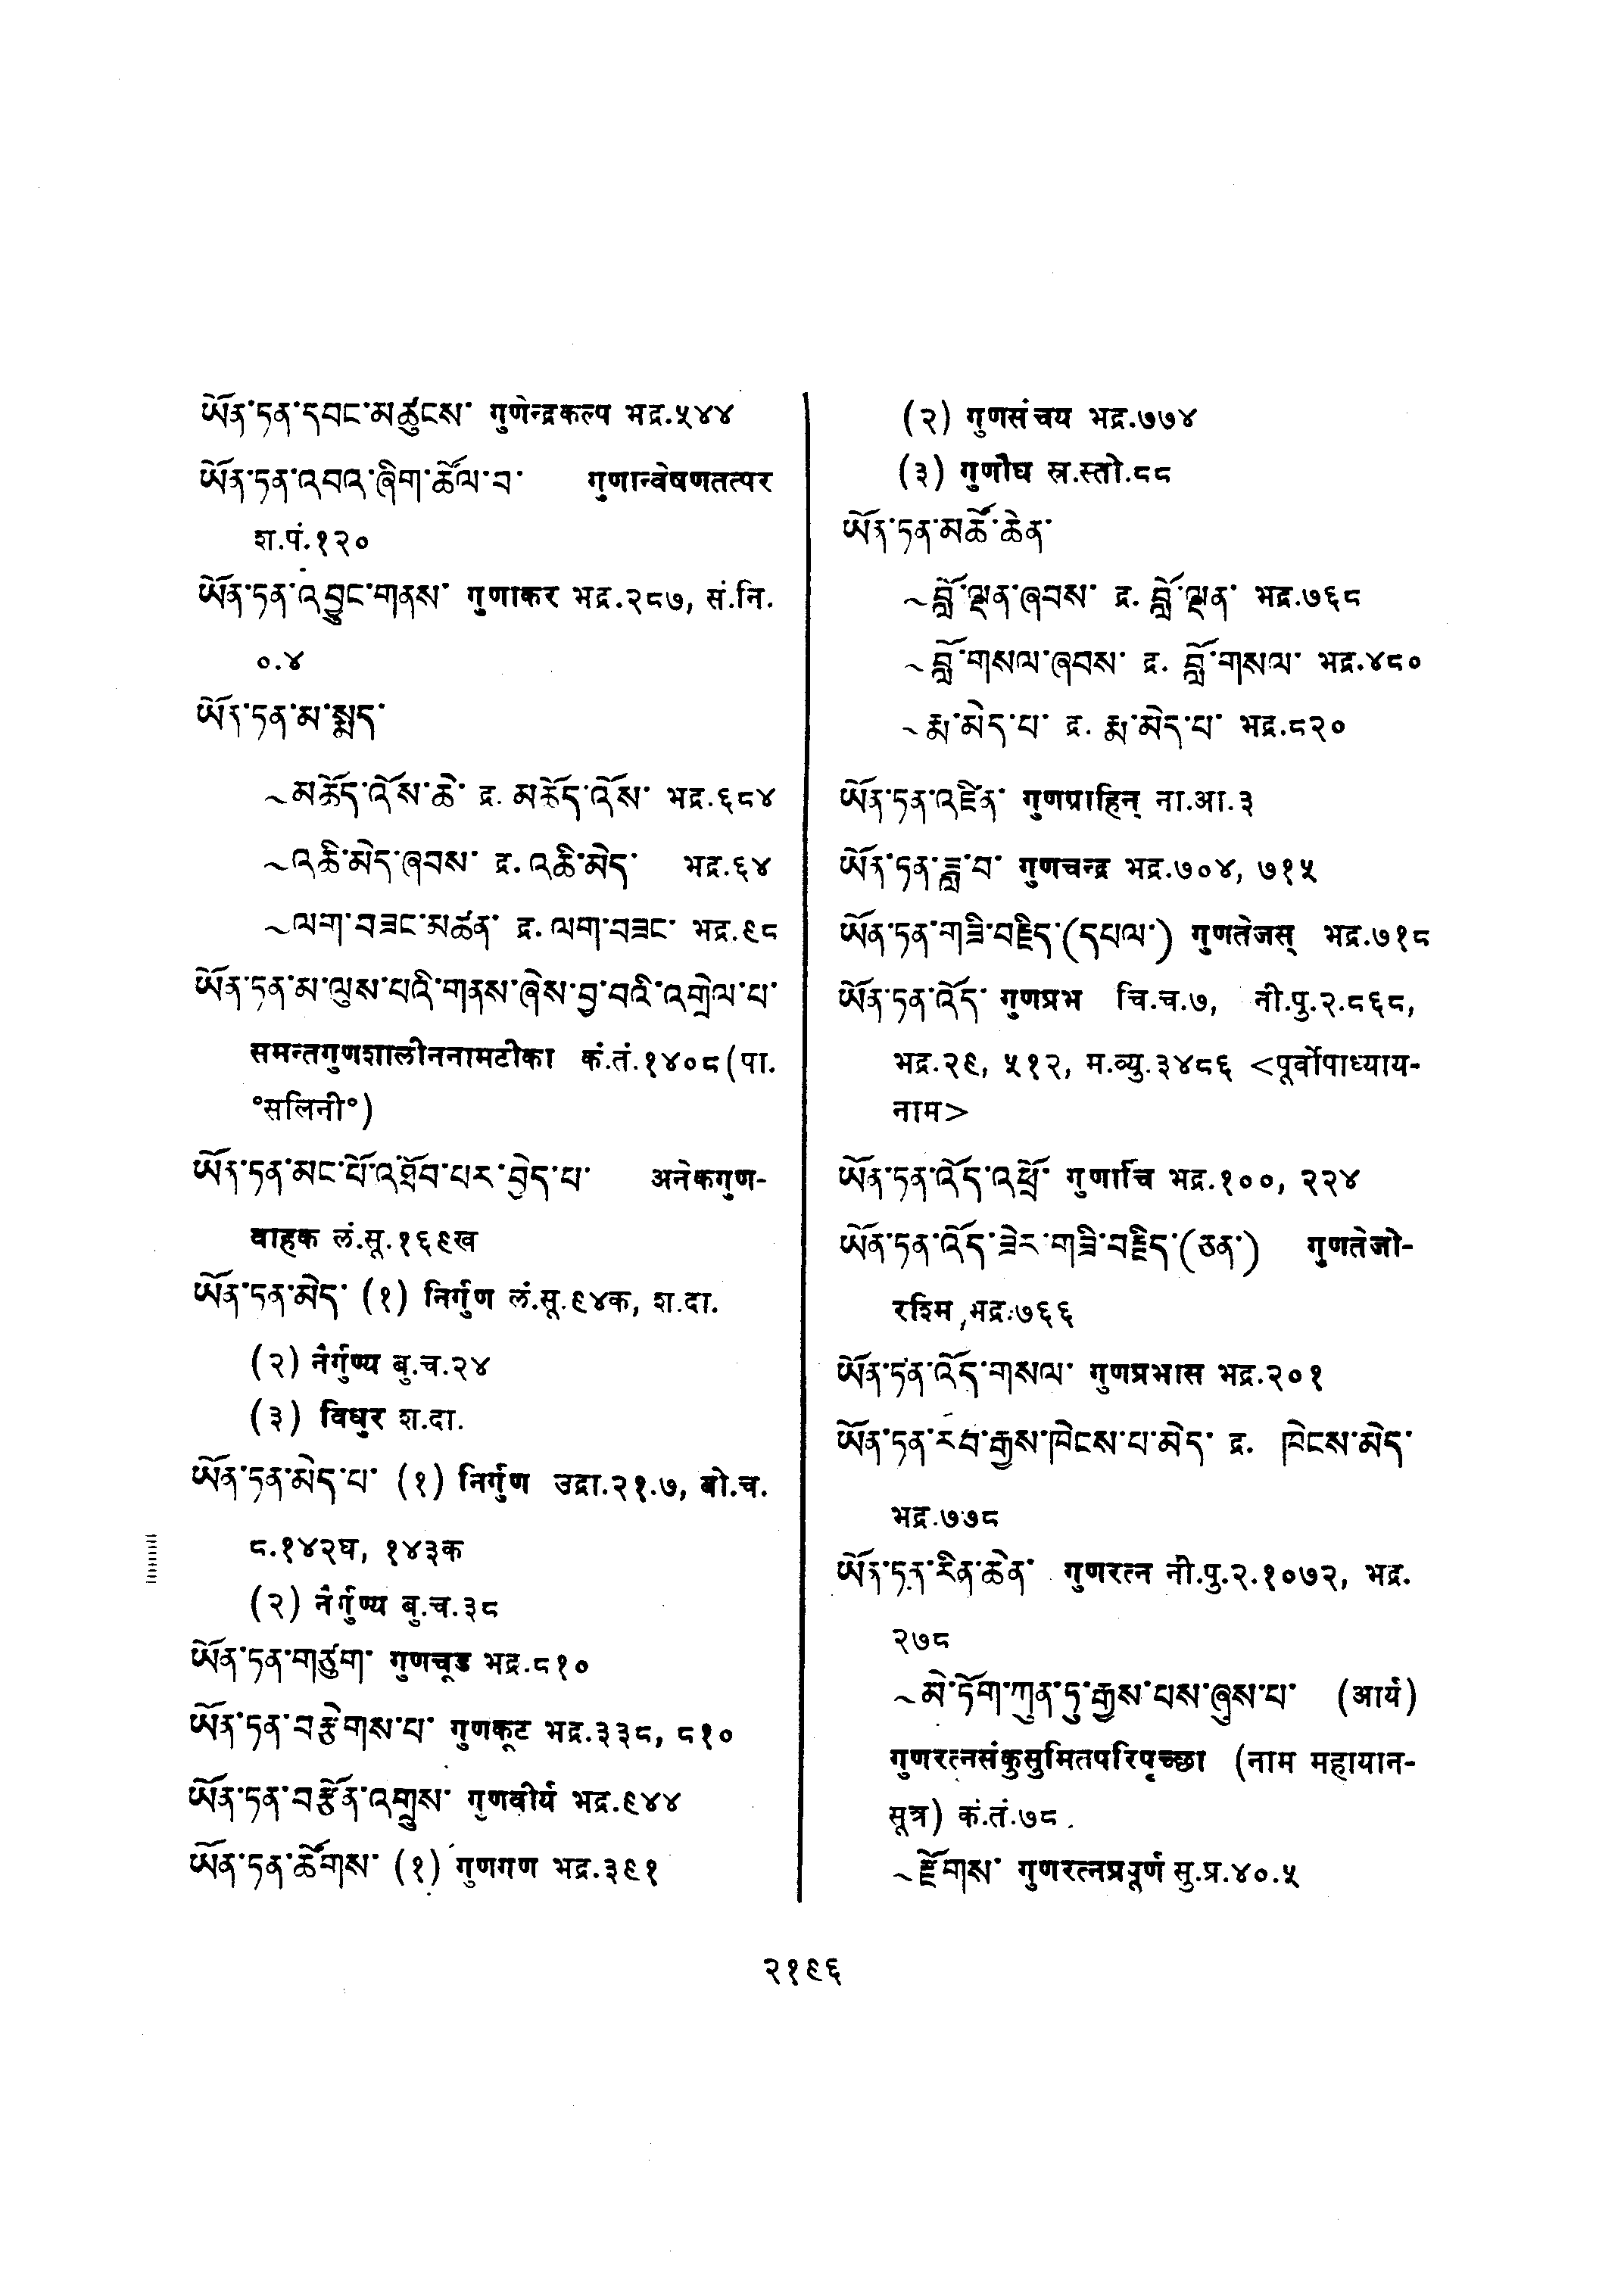 ཡོན་ཏན་དབང་མཚུངས་ गुणेन्द्रकल्प भद्र.५४४
ཡོན་ཏན་འབའ་ཞིག་ཚོལ་བ་ गुणान्वेषणतत्पर
श.पं.१२०
ཡོན་ཏན་འབྱུང་གནས་ गुणाकर भद्र.२८७, सं.नि.
०.४
ཡོན་ཏན་མ་སྨད་
~མཆོད་འོས་ཆེ་ द्र. མཆོད་འོས་ भद्र.६८४
~འཆི་མེད་ཞབས་ द्र. འཆི་མེད་ भद्र.६४
~ལག་བཟང་མཚན་ द्र. ལག་བཟང་ भद्र.९८
ཡོན་ཏན་མ་ལུས་པའི་གནས་ཞེས་བྱ་བའི་འགྲེལ་པ་
समन्तगुणशालीननामटीका कं.तं.१४०८(पा.
°सलिनी°)
ཡོན་ཏན་མང་པོ་འཐོབ་པར་བྱེད་པ་ अनेकगुण-
वाहक लं.सू.१६९ख
ཡོན་ཏན་མེད་ (१) निर्गुण लं.सू.९४क, श.दा.
(२) नैर्गुण्य बु.च.२४
(३) विधुर श.दा.
ཡོན་ཏན་མེད་པ་ (१) निर्गुण उद्रा.२१.७, बो.च.
८.१४२घ, १४३क
(२) नैर्गुण्य बु.च.३८
ཡོན་ཏན་གཙུག་ गुणचूड भद्र.८१०
ཡོན་ཏན་བརྩེགས་པ་ गुणकूट भद्र.३३८, ८१०
ཡོན་ཏན་བརྩོན་འགྲུས་ गुणवीर्य भद्र.९४४
ཡོན་ཏན་ཚོགས་ (१) गुणगण भद्र.३९१
(२) गुणसंचय भद्र.७७४
(३) गुणौघ स्र.स्तो.८८
ཡོན་ཏན་མཚོ་ཆེན་
~བློ་ལྡན་ཞབས་ द्र. བློ་ལྡན་ भद्र.७६८
~བློ་གསལ་ཞབས་ द्र. བློ་གསལ་ भद्र.४८०
~རྨ་མེད་པ་ द्र. རྨ་མེད་པ་ भद्र.८२०
ཡོན་ཏན་འཛིན་ गुणग्राहिन् ना.आ.३
ཡོན་ཏན་ཟླ་བ་ गुणचन्द्र भद्र.७०४, ७१५
ཡོན་ཏན་གཟི་བརྗིད་(དཔལ་) गुणतेजस् भद्र.७१८
ཡོན་ཏན་འོད་ गुणप्रभ चि.च.७, नी.पु.२.८६८,
भद्र.२९, ५१२, म.व्यु.३४८६ <पूर्वोपाध्याय-
नाम>
ཡོན་ཏན་འོད་འཕྲོ་ गुणार्चि भद्र.१००, २२४
ཡོན་ཏན་འོད་ཟེར་གཟི་བརྗིད་(ཅན་) गुणतेजो-
रश्मि भद्र.७६६
ཡོན་ཏན་འོད་གསལ་ गुणप्रभास भद्र.२०१
ཡོན་ཏན་རབ་རྒྱས་ཁེངས་པ་མེད་ द्र. ཁེངས་མེད་
भद्र.७७८
ཡོན་ཏན་རིན་ཆེན་ गुणरत्न नी.पु.२.१०७२, भद्र.
२७८
~མེ་ཏོག་ཀུན་ཏུ་རྒྱས་པས་ཞུས་པ་ (आर्य)
गुणरत्नसंकुसुमितपरिपृच्छा (नाम महायान-
सूत्र) कं.तं.७८.
~རྫོགས་ गुणरत्नप्रपूर्ण सु.प्र.४०.५
२१९६